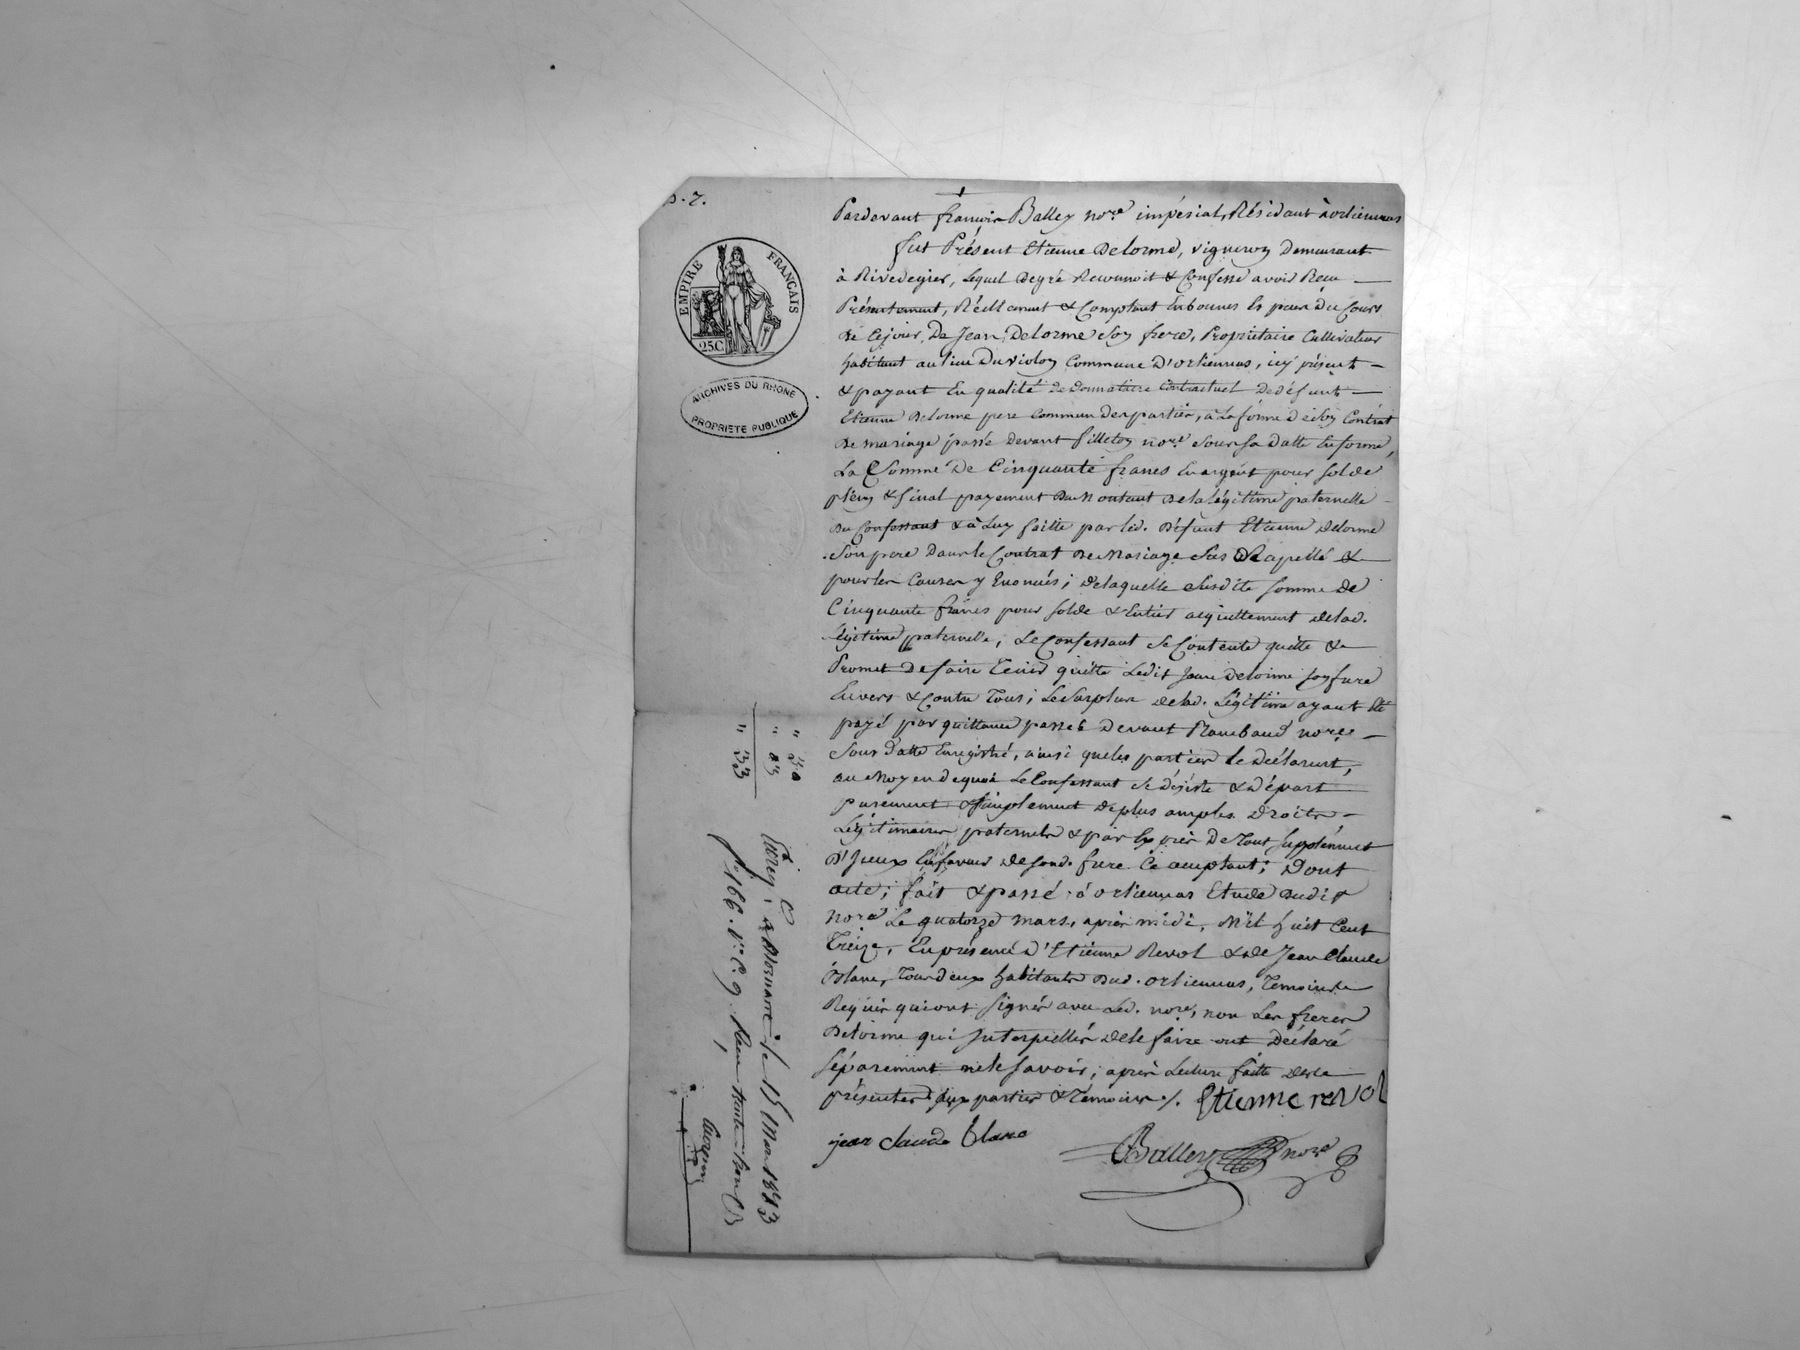 p. 7.
EMPIRE FRANÇAIS
25C
ARCHIVES DU RHONE
PROPRIETE PUBLIQUE
Pardevant françois Balley nore impérial, Résidant à orliennas
fut Présent Etienne Delorme, vigneron Demeurant
à Rivedegier, lequel Degré Reconnoit & Confesse avoir Recu
Présentement, Réellement & Comptant En bonnes Es pèces Du Cours
De Cejour, De Jean Delorme Son frere, Propriétaire Cultivateur
habitant au lieu Du violon Commune D'orliennas, icy présent
& payant En qualité de Donnataire Contractuel De défunt
Etienne Delorme pere commun Des parties, à La forme de Son Contrat
De mariage passé Devant filleton nore Sous Sa Datte En forme,
La Somme De Cinquante francs En argent pour Solde
plein & final payement Du Montant De la légitime paternelle
Du Confessant & à Luy faitte par led. Défunt Etienne Delorme
Son pere Dans le Contrat De Mariage Sus Rapellé &
pour les Causes y Enoncés; De laquelle Susdite Somme De
Cinquante francs pour Solde & Entier acquittement de lad.
légitime paternelle, Le Confessant Se Contente quitte &
Promet De faire Tenir quitte Ledit Jean Delorme Son frere
Envers & Contre Tous; Le Surplus de lad. Légitime ayant Eté
payé par quittance passée Devant Rambaud nore
Sous Datte Enregistré, ainsi que les parties le Déclarent,
au Moyen de quoi Le Confessant Se désiste & Départ
purement & Simplement De plus amples Droits
Légitimaires paternels & par Exprès De Tout Supplément
D'Jceux En faveur de Sond. frere Ce acceptant; Dont
acte; fait & passé à orliennas Etude Dudit
nore Le quatorze mars, après midi, Mil huit Cent
Treize, En présence D'Etienne Revol & de Jean Claude
Blanc, Tous deux habitants Dud. orliennas, Temoins
Requis qui ont Signés avec Led. nore, non Les freres
Delorme qui Interpellés de le faire ont Déclaré
Séparément ne le Savoir, après Lecture faitte Des
présentes aux parties & Témoins /. Etienne revol
jean claude blanc
Balley nore
" 30
" 03
" 33
Enreg. à Mornant le 15 Mars 1813
fo 166 Vo C. 9. Recu trente trois